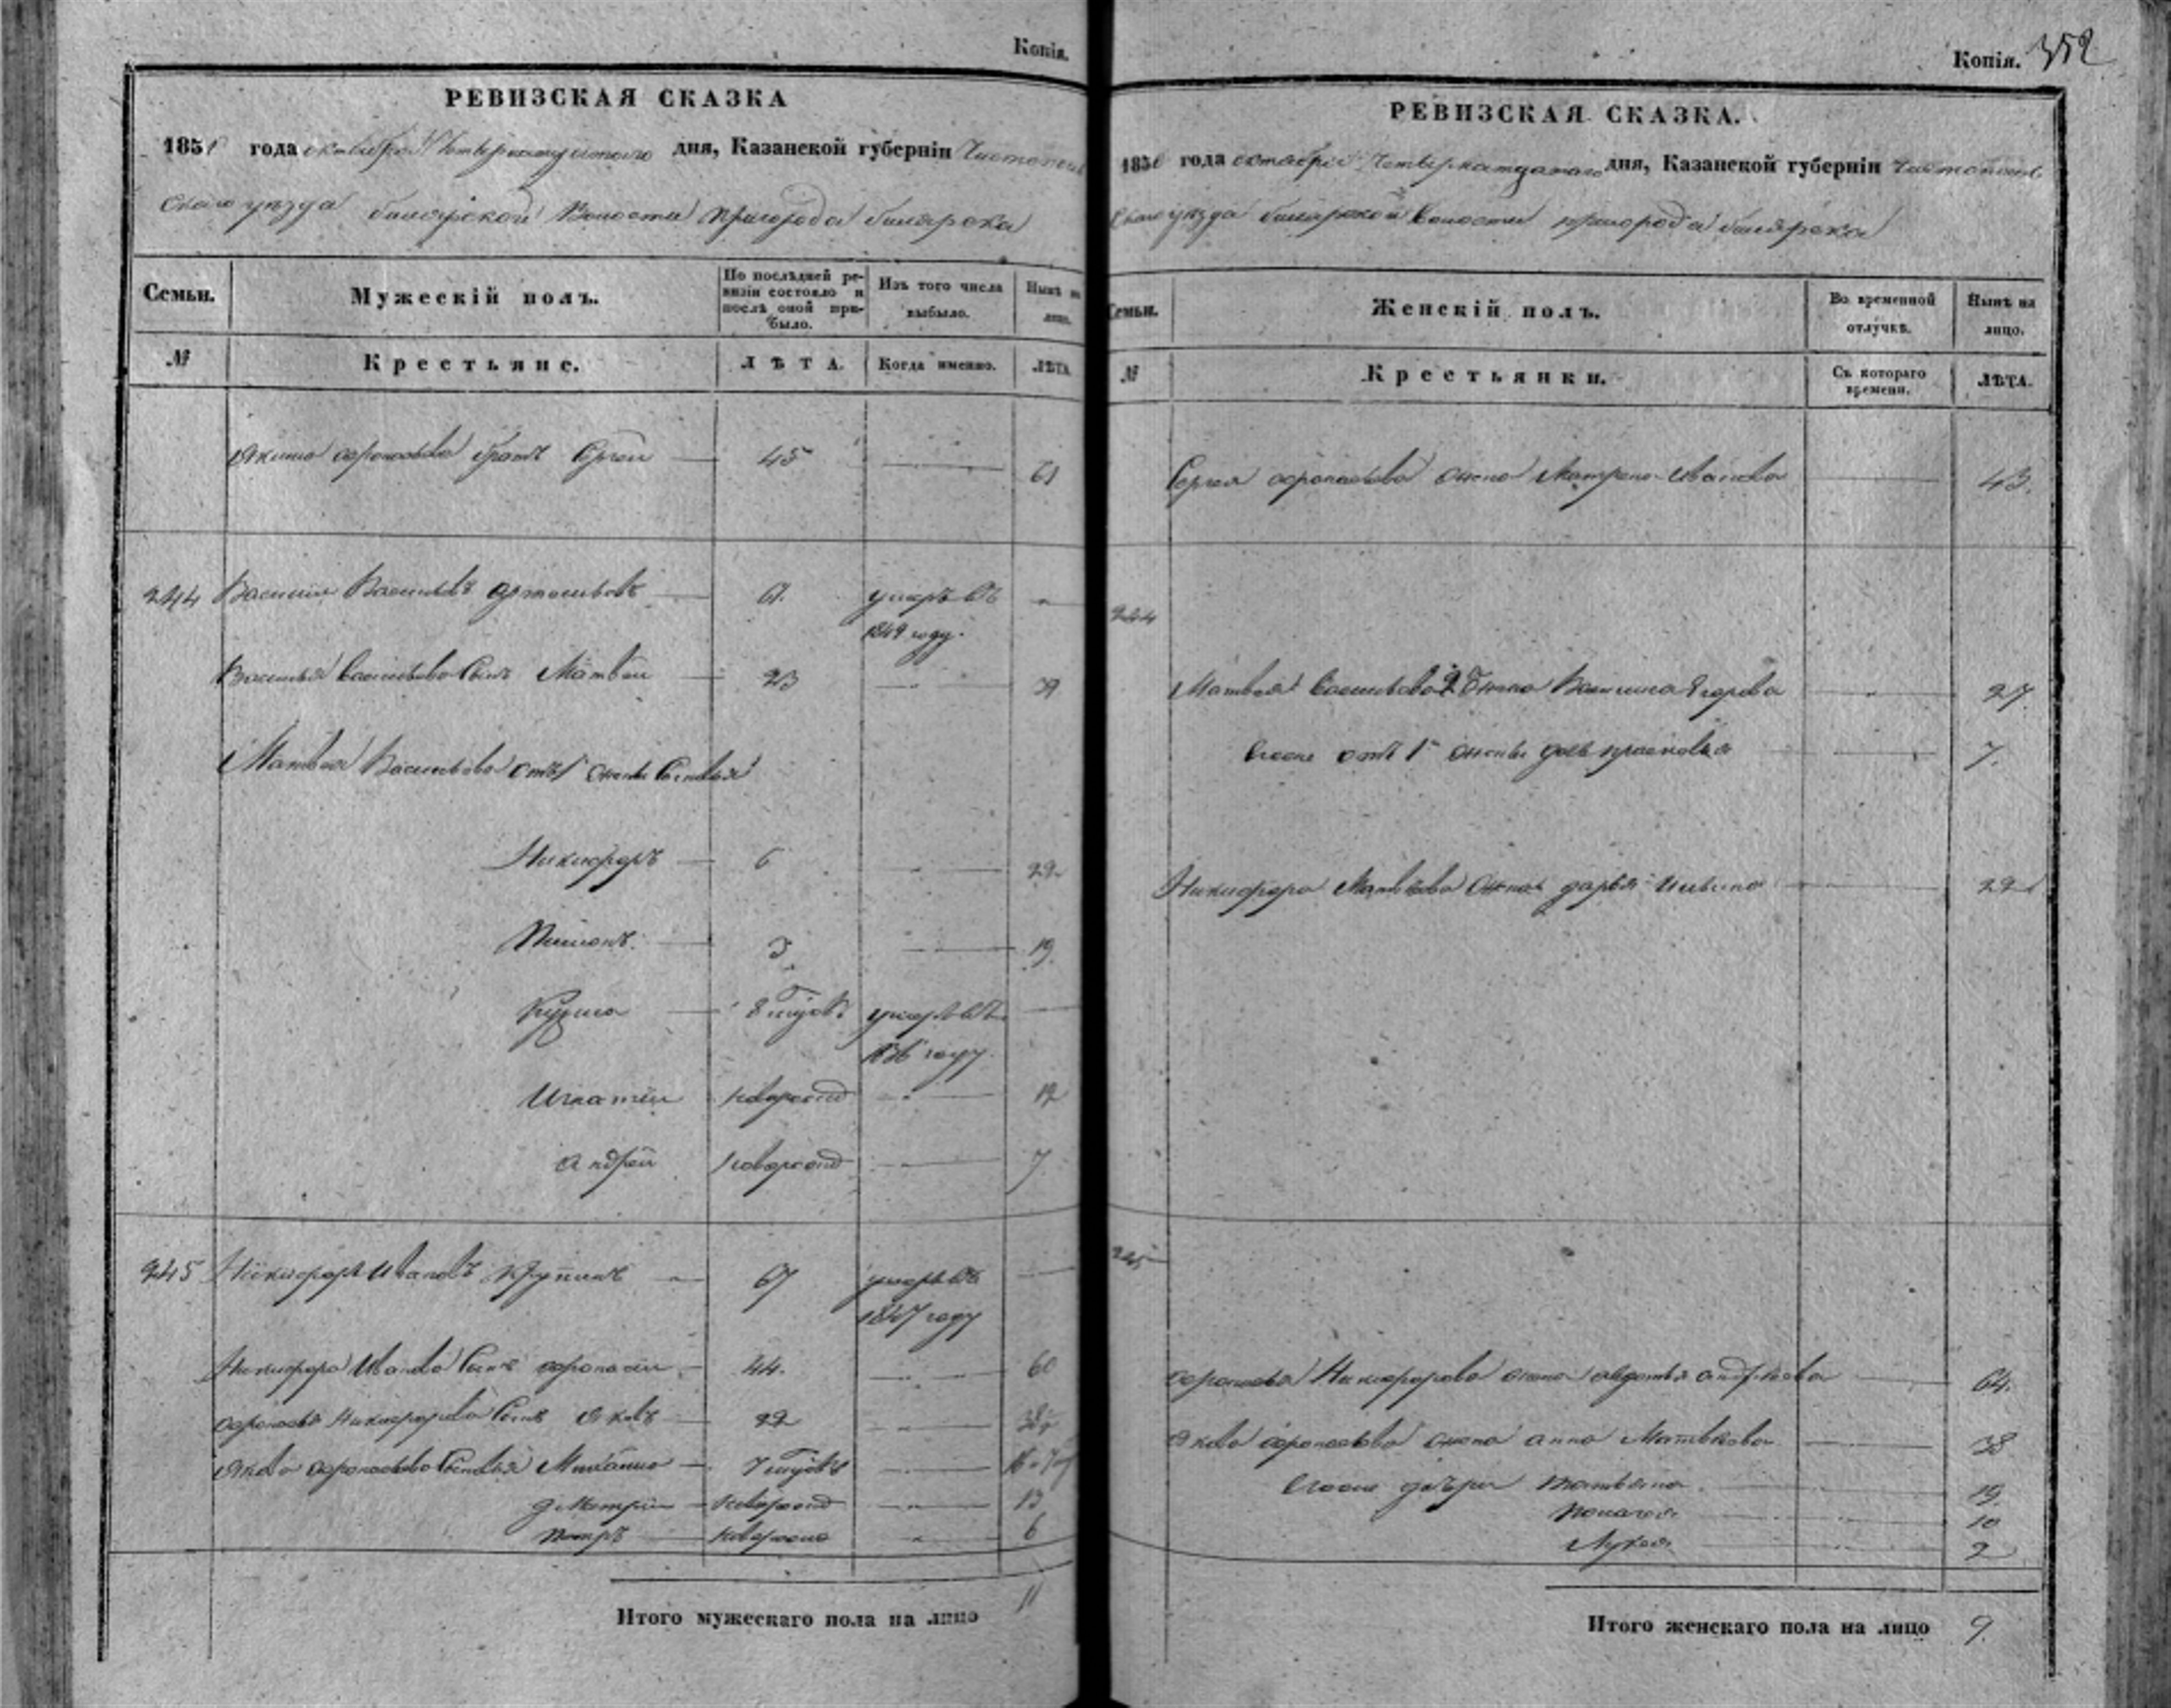 Копія.
РЕВИЗСКАЯ СКАЗКА
1850 года октября Четырнадцатого дня, Казанской губерніи Чистополь
скаго уѣзда билярской Волости пригорода билярска
Семьи. Мужескій полъ. По послѣдней ре-визіи состояло и послѣ оной при-было. Изъ того числа выбыло. Нынѣ на лицо.
№ Крестьяне. ЛѢТА. Когда именно. ЛѢТА.
Якима афонасьева братъ Сергей 45 61
244 Василий Васильевъ 61. умеръ въ
1849 году.
Василья Васильева Сынъ Матвей 23 39
Матвея Васильева отъ 1й жены Сыновья
Никифоръ 6 22
Пименъ 3 19
Кузма 8 умеръ въ
1836 году.
Игнатій новорожд 12
Андрей новорожд 7
245 Никифоръ Ивановъ Крупинъ 67 умеръ въ
1847 году
Никифора Иванова Сынъ афонасій 44. 60
афонасья Никифорова Сынъ Яковъ 22 38
Якова афонасьева Сыновья Михайло 7 16
Дмитрій новорожд 13
Петръ новорожд 6
Итого мужескаго пола на лицо 11
Копія. 352
РЕВИЗСКАЯ СКАЗКА.
1850 года октября Четырнадцатого дня, Казанской губерніи Чистополь
скаго уѣзда билярской Волости пригорода билярска
Семьи. Женскій полъ. Во временной отлучкѣ. Нынѣ на лицо.
№ Крестьянки. Съ котораго времени. ЛѢТА.
Сергея афонасьева жена Матрена Иванова 43.
244
Матвея Васильева 2 жена Егорова 27.
Его же отъ 1й жены дочь прасковья 7.
Никифора Матвѣева жена дарья Ильина 22
245
афонасья Никифорова жена авдотья андреева 64.
Якова афонасьева жена анна Матвѣева 38
Его же дочери татьяна 19.
пелагея 10
Лукея 2
Итого женскаго пола на лицо 9.